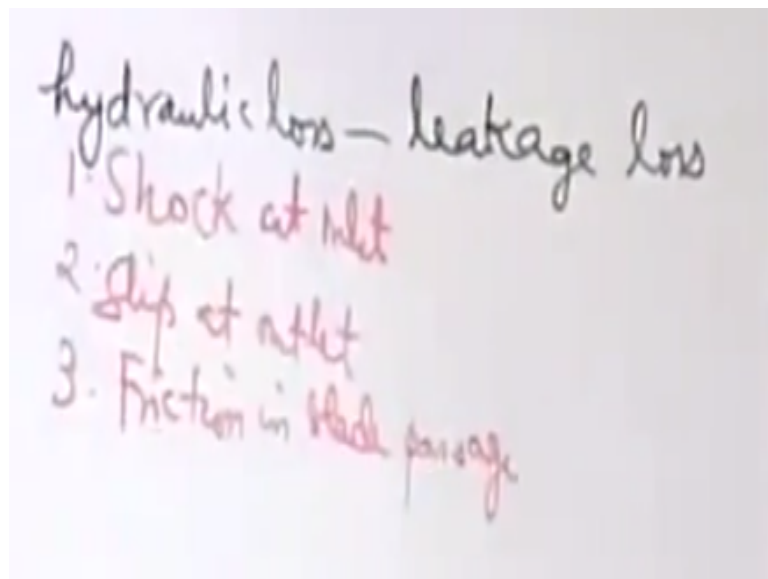 hydraulic loss — leakage loss
1. Shock at inlet
2. Slip at outlet
3. Friction in blade passage